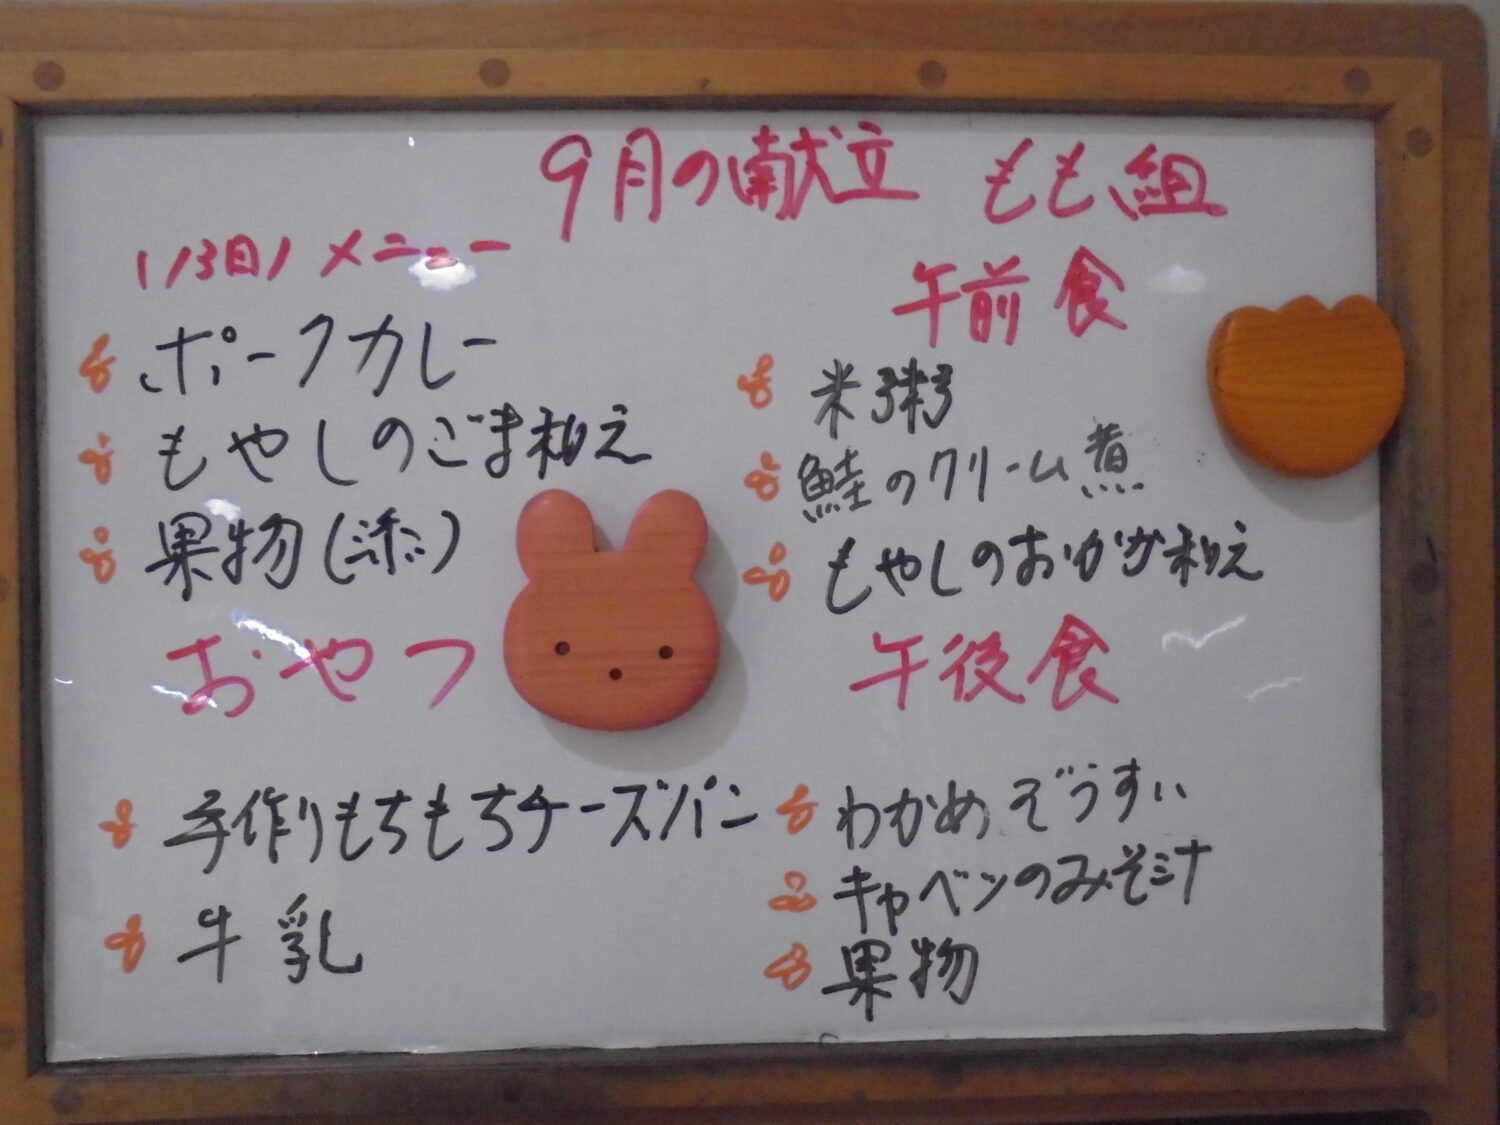 9月の献立 もも組
(13日) メニュー
ポークカレー
もやしのごま和え
果物(添)
おやつ
手作りもちもちチーズパン
牛乳
午前食
米粥
鮭のクリーム煮
もやしのおかか和え
午後食
わかめぞうすい
キャベツのみそ汁
果物